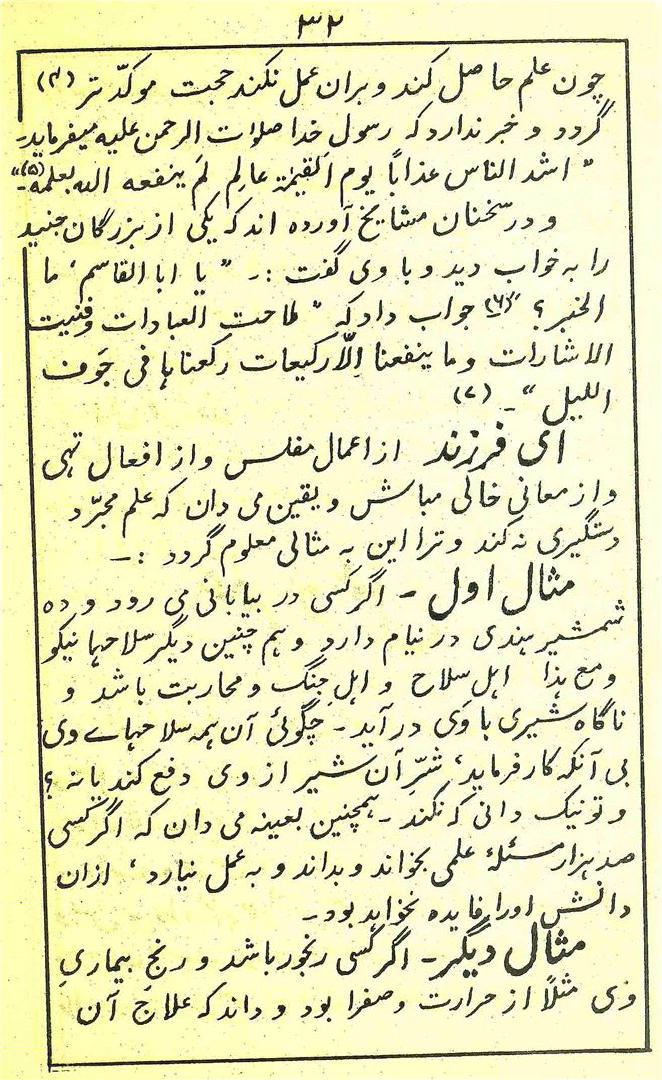 ۳۲
چون علم حاصل کند و بران عمل نکند حجت موکدّ تر (۴)
گردد و خبر ندارد که رسول خدا صلوات الرحمن علیه میفرماید۔
" اشد الناس عذاباً یوم القیٰمۃ عالِم لَم ینفعه الله بعلمه"(۵)۔
و در سخنان مشایخ آورده اند که یکی از بزرگان جنید
را به خواب دید و با وی گفت :۔ " یا ابا القاسم، ما
الخبر؟" (۶) جواب داد که " طاحت العبادات و فنیت
الاشارات و ما ینفعنا اِلّا رکیعات رکعناها فی جَوف
اللیل "۔ (۷)
ای فرزند از اعمال مفلس و از افعال تهی
و از معانی خالی مباش و یقین می دان که علم مجرّد
دستگیری نه کند و ترا این به مثالی معلوم گردد :۔
مثال اول ۔ اگر کسی در بیابانی می رود و ده
شمشیر هندی در نیام دارد و هم چنین دیگر سلاحها نیکو
و مع هذا اهلِ سلاح و اهلِ جنگ و محاربت باشد و
ناگاه شیری با وَی در آید ۔ چگوئی آن همه سلاحهاے وی
بی آنکه کار فرماید، شرِّ آن شیر از وی دفع کند یا نه ؟
و تو نیک دانی که نکند ۔ همچنین بعینه می دان که اگر کسی
صد هزار مسئلۂ علمی بخواند و بداند و به عمل نیارد ، ازان
دانش اورا فایده نخواهد بود ۔
مثال دیگر ۔ اگر کسی رنجور باشد و رنجِ بیماریِ
وَی مثلاً از حرارت و صفرا بود و داند که علاج آن